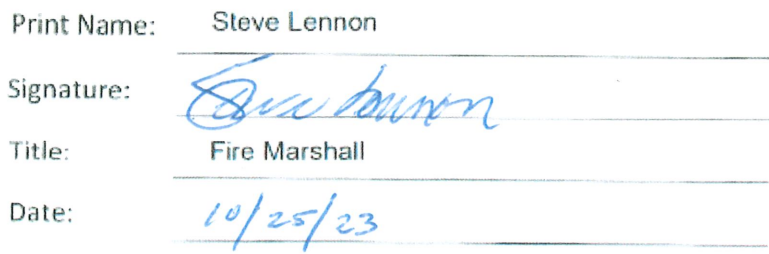 Print Name: Steve Lennon
Signature: Steve Lennon
Title: Fire Marshall
Date: 10/25/23